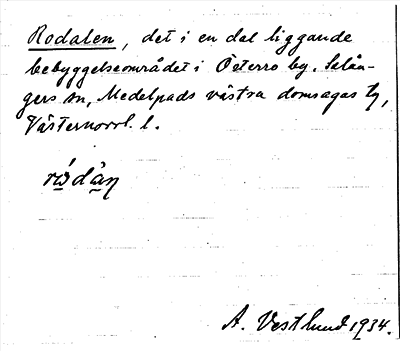 Rodalen, det i en dal liggande
bebyggelseområdet i Österro by. Selån-
gers sn, Medelpads västra domsagas tg,
Västernorrl. l.
A. Vestlund 1934.